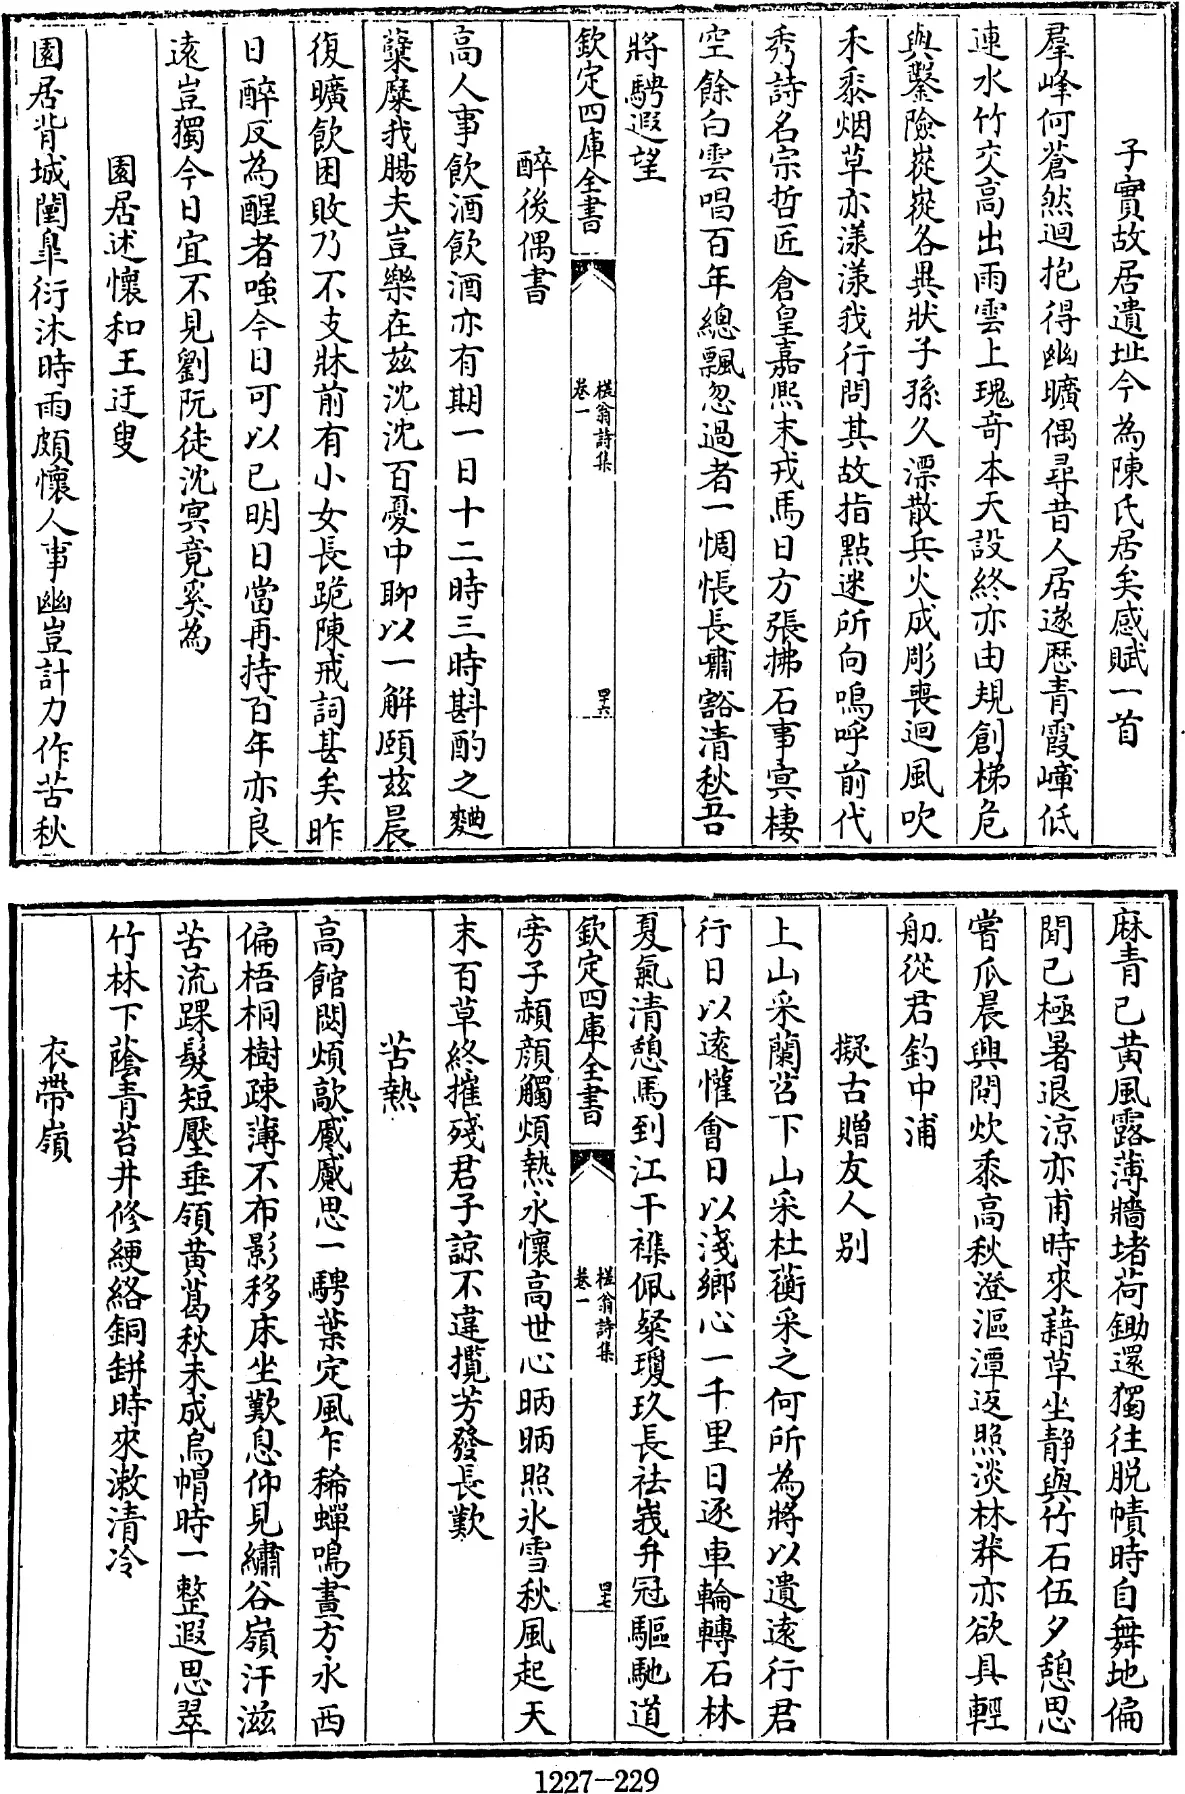 子實故居遺址今為陳氏居矣感賦一首
羣峰何蒼然迴抱得幽曠偶尋昔人居遂歷青霞嶂低
連水竹交高出雨雲上瑰奇本天設終亦由規創梯危
與鑿險嵸嵸各異狀子孫久漂散兵火成彫喪迴風吹
禾黍烟草亦漾漾我行問其故指點迷所向嗚呼前代
秀詩名宗哲匠倉皇嘉熙末戎馬日方張拂石事寘棲
空餘白雲唱百年總飄忽過者一惆悵長嘯豁清秋吾
將騁遐望
欽定四庫全書
槎翁詩集
卷一
四六
醉後偶書
高人事飲酒飲酒亦有期一日十二時三時斟酌之麯
糵糜我腸夫豈樂在茲沈沈百憂中聊以一解頤茲晨
復曠飲困敗乃不支牀前有小女長跪陳戒詞甚矣昨
日醉反為醒者嗤今日可以已明日當再持百年亦良
遠豈獨今日宜不見劉阮徒沈冥竟奚為
園居述懷和王迂叟
園居背城闉臯衍沐時雨頗懷人事幽豈計力作苦秋
麻青已黃風露薄牆堵荷鋤還獨往脱幘時自舞地偏
聞已極暑退涼亦甫時來藉草坐靜與竹石伍夕憩思
嘗瓜晨興問炊黍高秋澄漚潭返照淡林莽亦欲具輕
舠從君釣中浦
擬古贈友人别
上山采蘭苕下山采杜蘅采之何所為將以遺遠行君
行日以遠懽會日以淺鄉心一千里日逐車輪轉石林
夏氣清憩馬到江干襍佩粲瓊玖長袪峩弁冠驅馳道
欽定四庫全書
槎翁詩集
卷一
四七
旁子頳顔觸煩熱永懷高世心昞昞照氷雪秋風起天
末百草終摧殘君子諒不違攬芳發長歎
苦熱
高館閟煩歊慼慼思一騁葉定風乍稀蟬鳴晝方永西
偏梧桐樹疎薄不布影移床坐歎息仰見繡谷嶺汗滋
苦流踝髮短壓垂領黄葛秋未成烏帽時一整遐思翠
竹林下蔭青苔井修綆絡銅缾時來漱清冷
衣帶嶺
1227-229